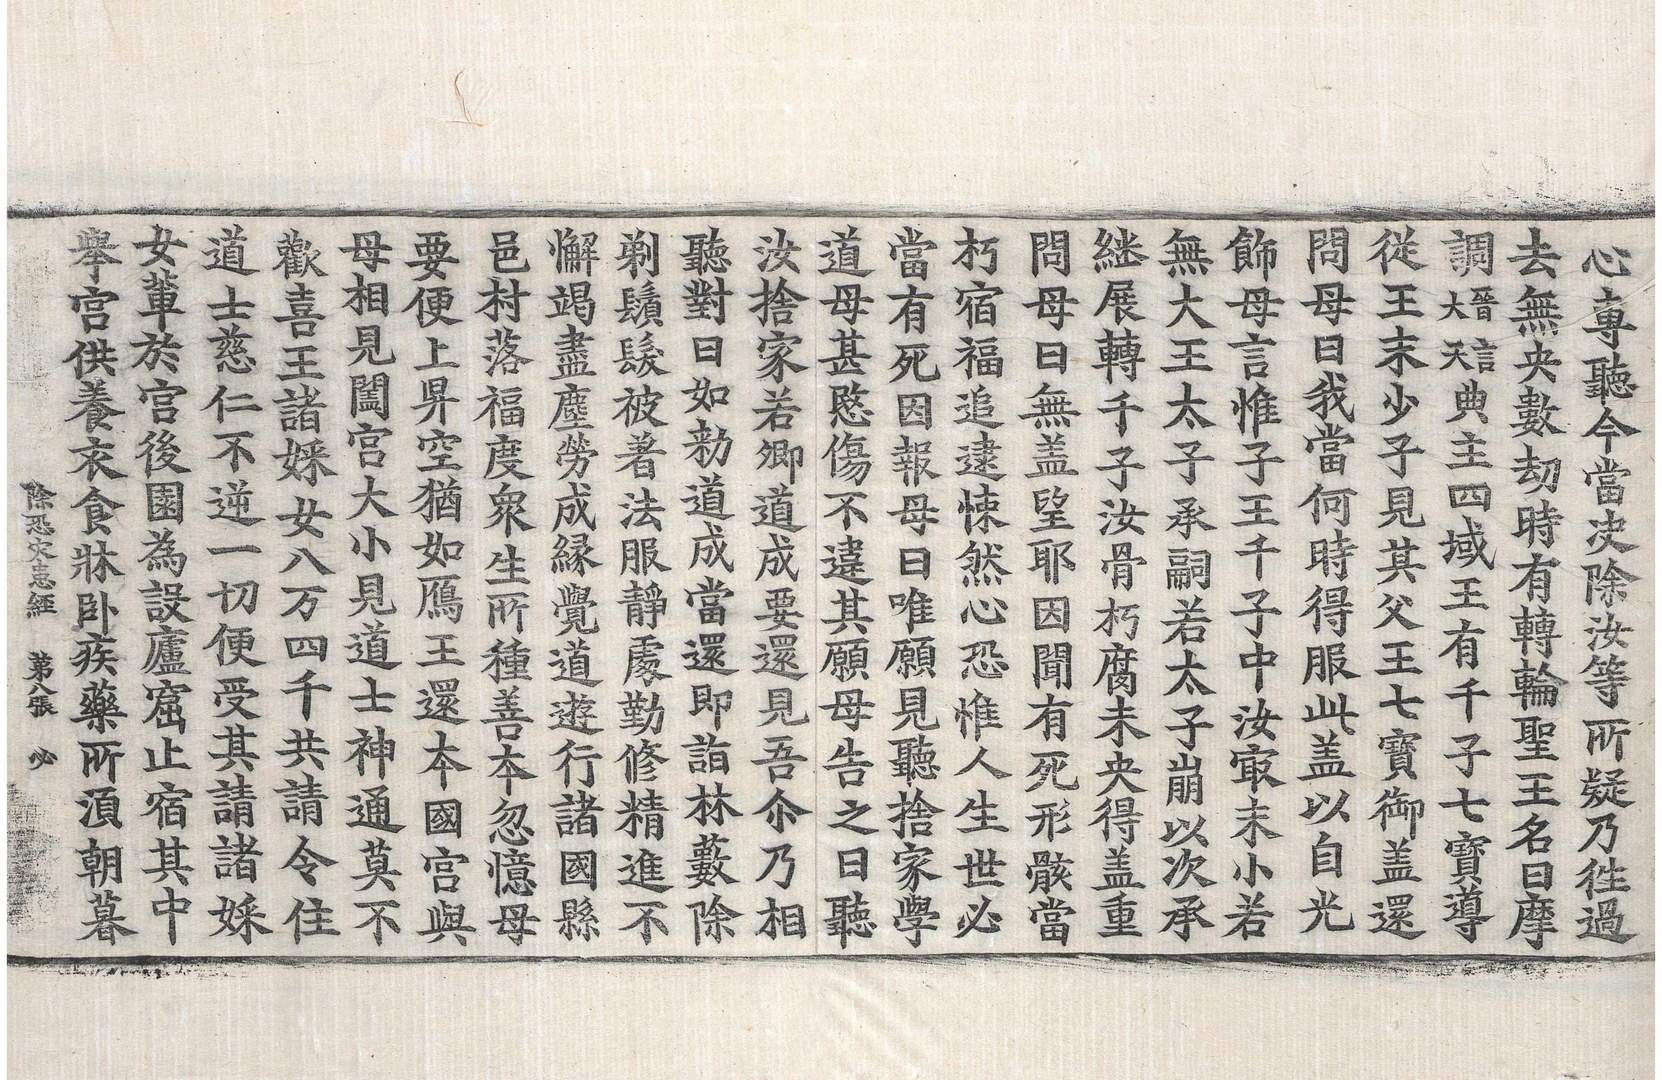 心專聽今當決除汝等所疑乃徃過
去無央數劫時有轉輪聖王名曰摩
調晉言大天典主四域王有千子七寶導
從王末少子見其父王七寶御盖還
問母曰我當何時得服此盖以自光
飾母言惟子王千子中汝冣末小若
無大王太子承嗣若太子崩以次承
継展轉千子汝骨朽腐未央得盖重
問母曰無盖望耶因聞有死形骸當
朽宿福追逮悚然心恐惟人生世必
當有死因報母曰唯願見聽捨家學
道母甚愍傷不違其願母告之曰聽
汝捨家若卿道成要還見吾尒乃相
聽對曰如勑道成當還即詣林藪除
剃鬚髮被著法服靜處勤修精進不
懈竭盡塵勞成縁覺道遊行諸國縣
邑村落福度衆生所種善本忽憶母
要便上昇空猶如鴈王還本國宫與
母相見闔宫大小見道士神通莫不
歡喜王諸婇女八万四千共請令住
道士慈仁不逆一切便受其請諸婇
女輩於宫後園為設廬窟止宿其中
舉宫供養衣食牀卧疾藥所湏朝暮
除恐灾患經　第八張　必